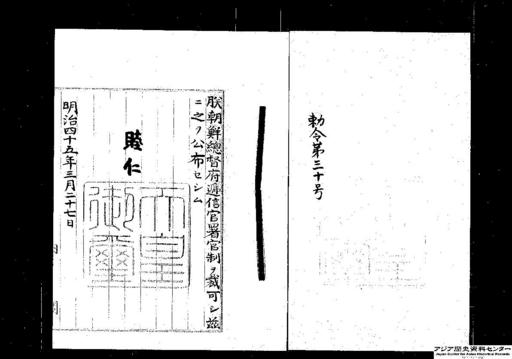 勅令第三十号
朕朝鮮總督府遞信官署官制ヲ裁可シ茲
ニ之ヲ公布セシム
睦仁
天皇御璽
明治四十五年三月二十七日
アジア歴史資料センター
Japan Center for Asian Historical Records